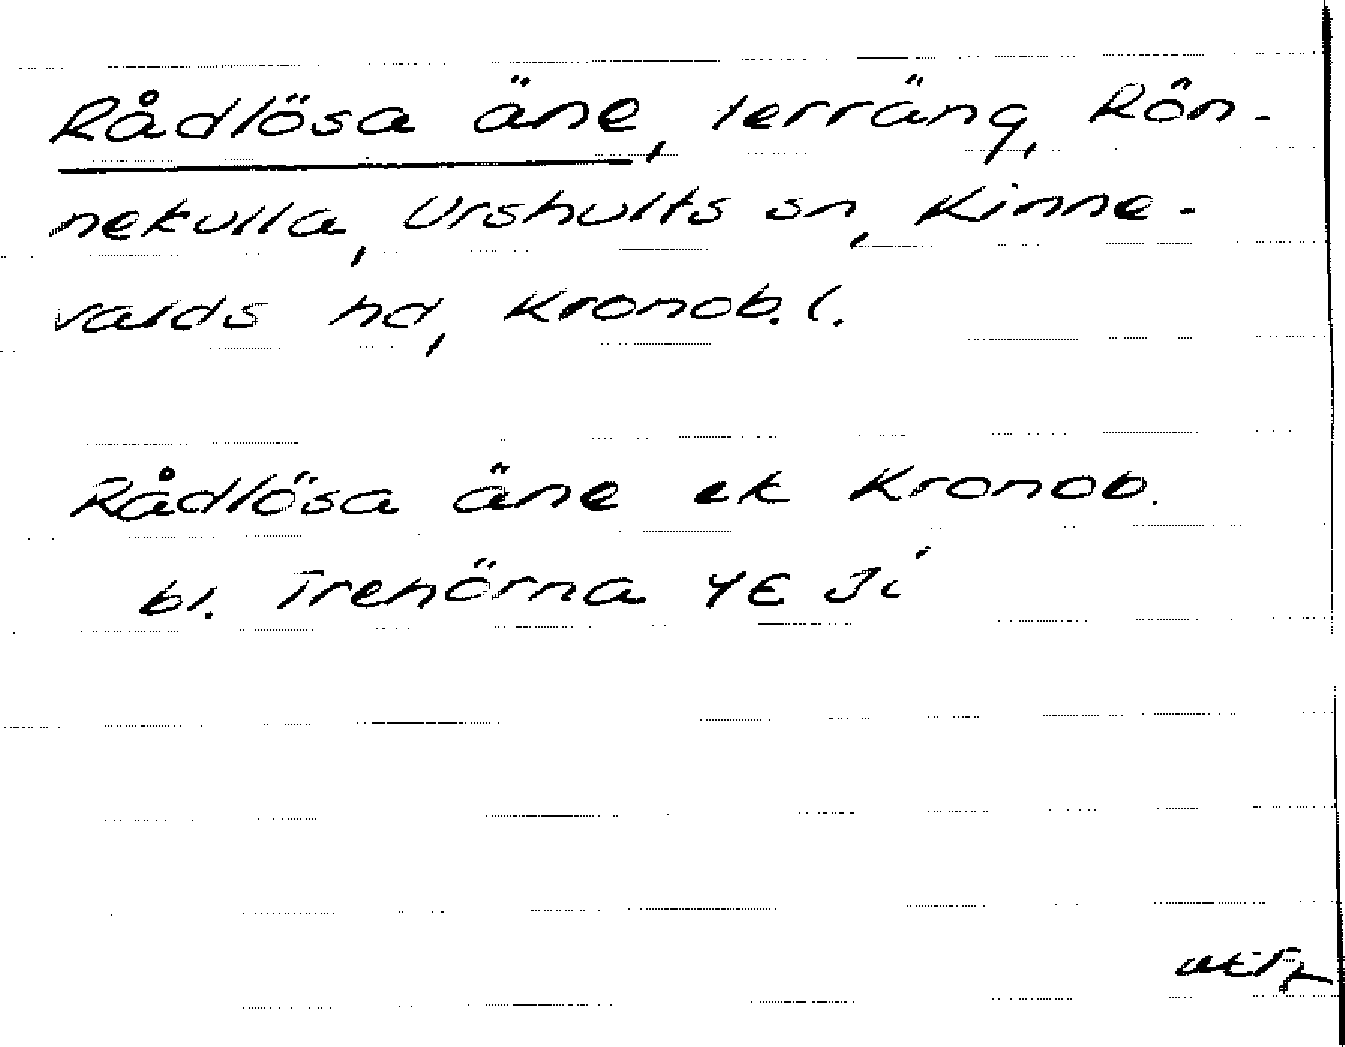 Rådlösa äne, terräng, Rön-
nekulla, Urshults sn, Kinne-
valds hd, Kronob. l.
Rådlösa äne ek Kronob.
bl. Trehörna 4E Ji